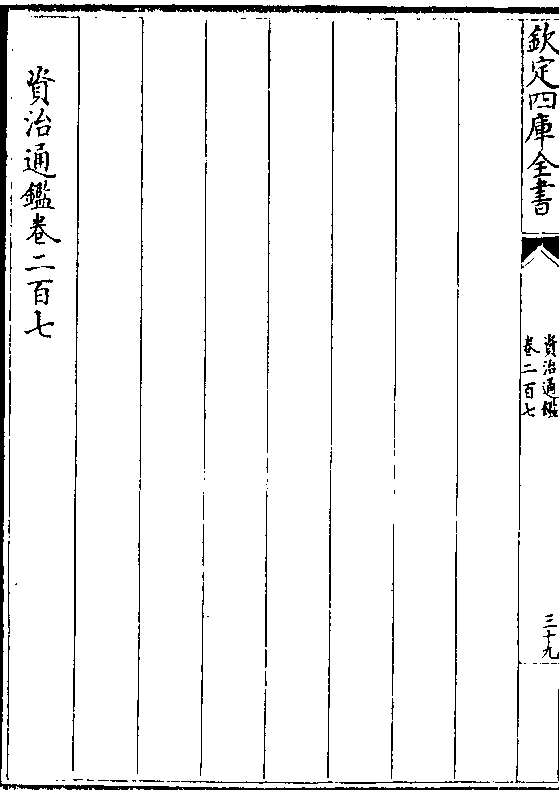 欽定四庫全書
資治通鑑
卷二百七
三十九
資治通鑑卷二百七